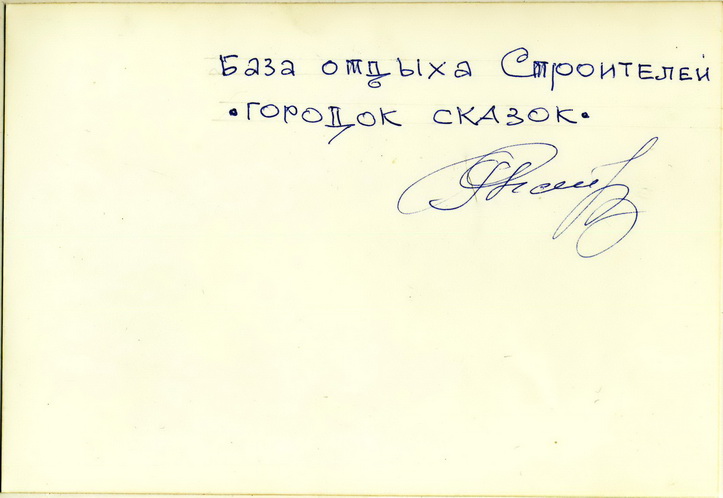 База отдыха Строителей
•ГОРОДОК СКАЗОК•